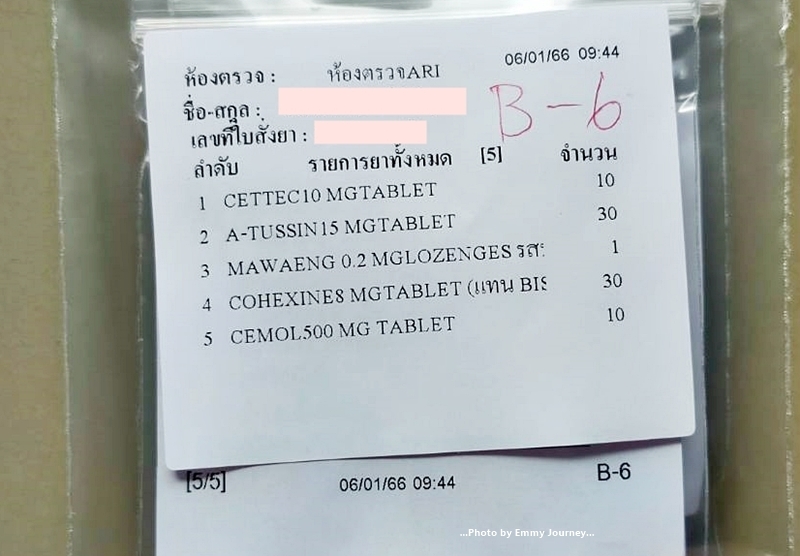 06/01/66 09:44
ห้องตรวจ : ห้องตรวจARI
ชื่อ-สกุล :
B-6
เลขที่ใบสั่งยา :
ลำดับ รายการยาทั้งหมด [5] จำนวน
1 CETTEC10 MGTABLET 10
2 A-TUSSIN15 MGTABLET 30
3 MAWAENG 0.2 MGLOZENGES รส: 1
4 COHEXINE8 MGTABLET (แทน BIS 30
5 CEMOL500 MG TABLET 10
[5/5] 06/01/66 09:44 B-6
...Photo by Emmy Journey...